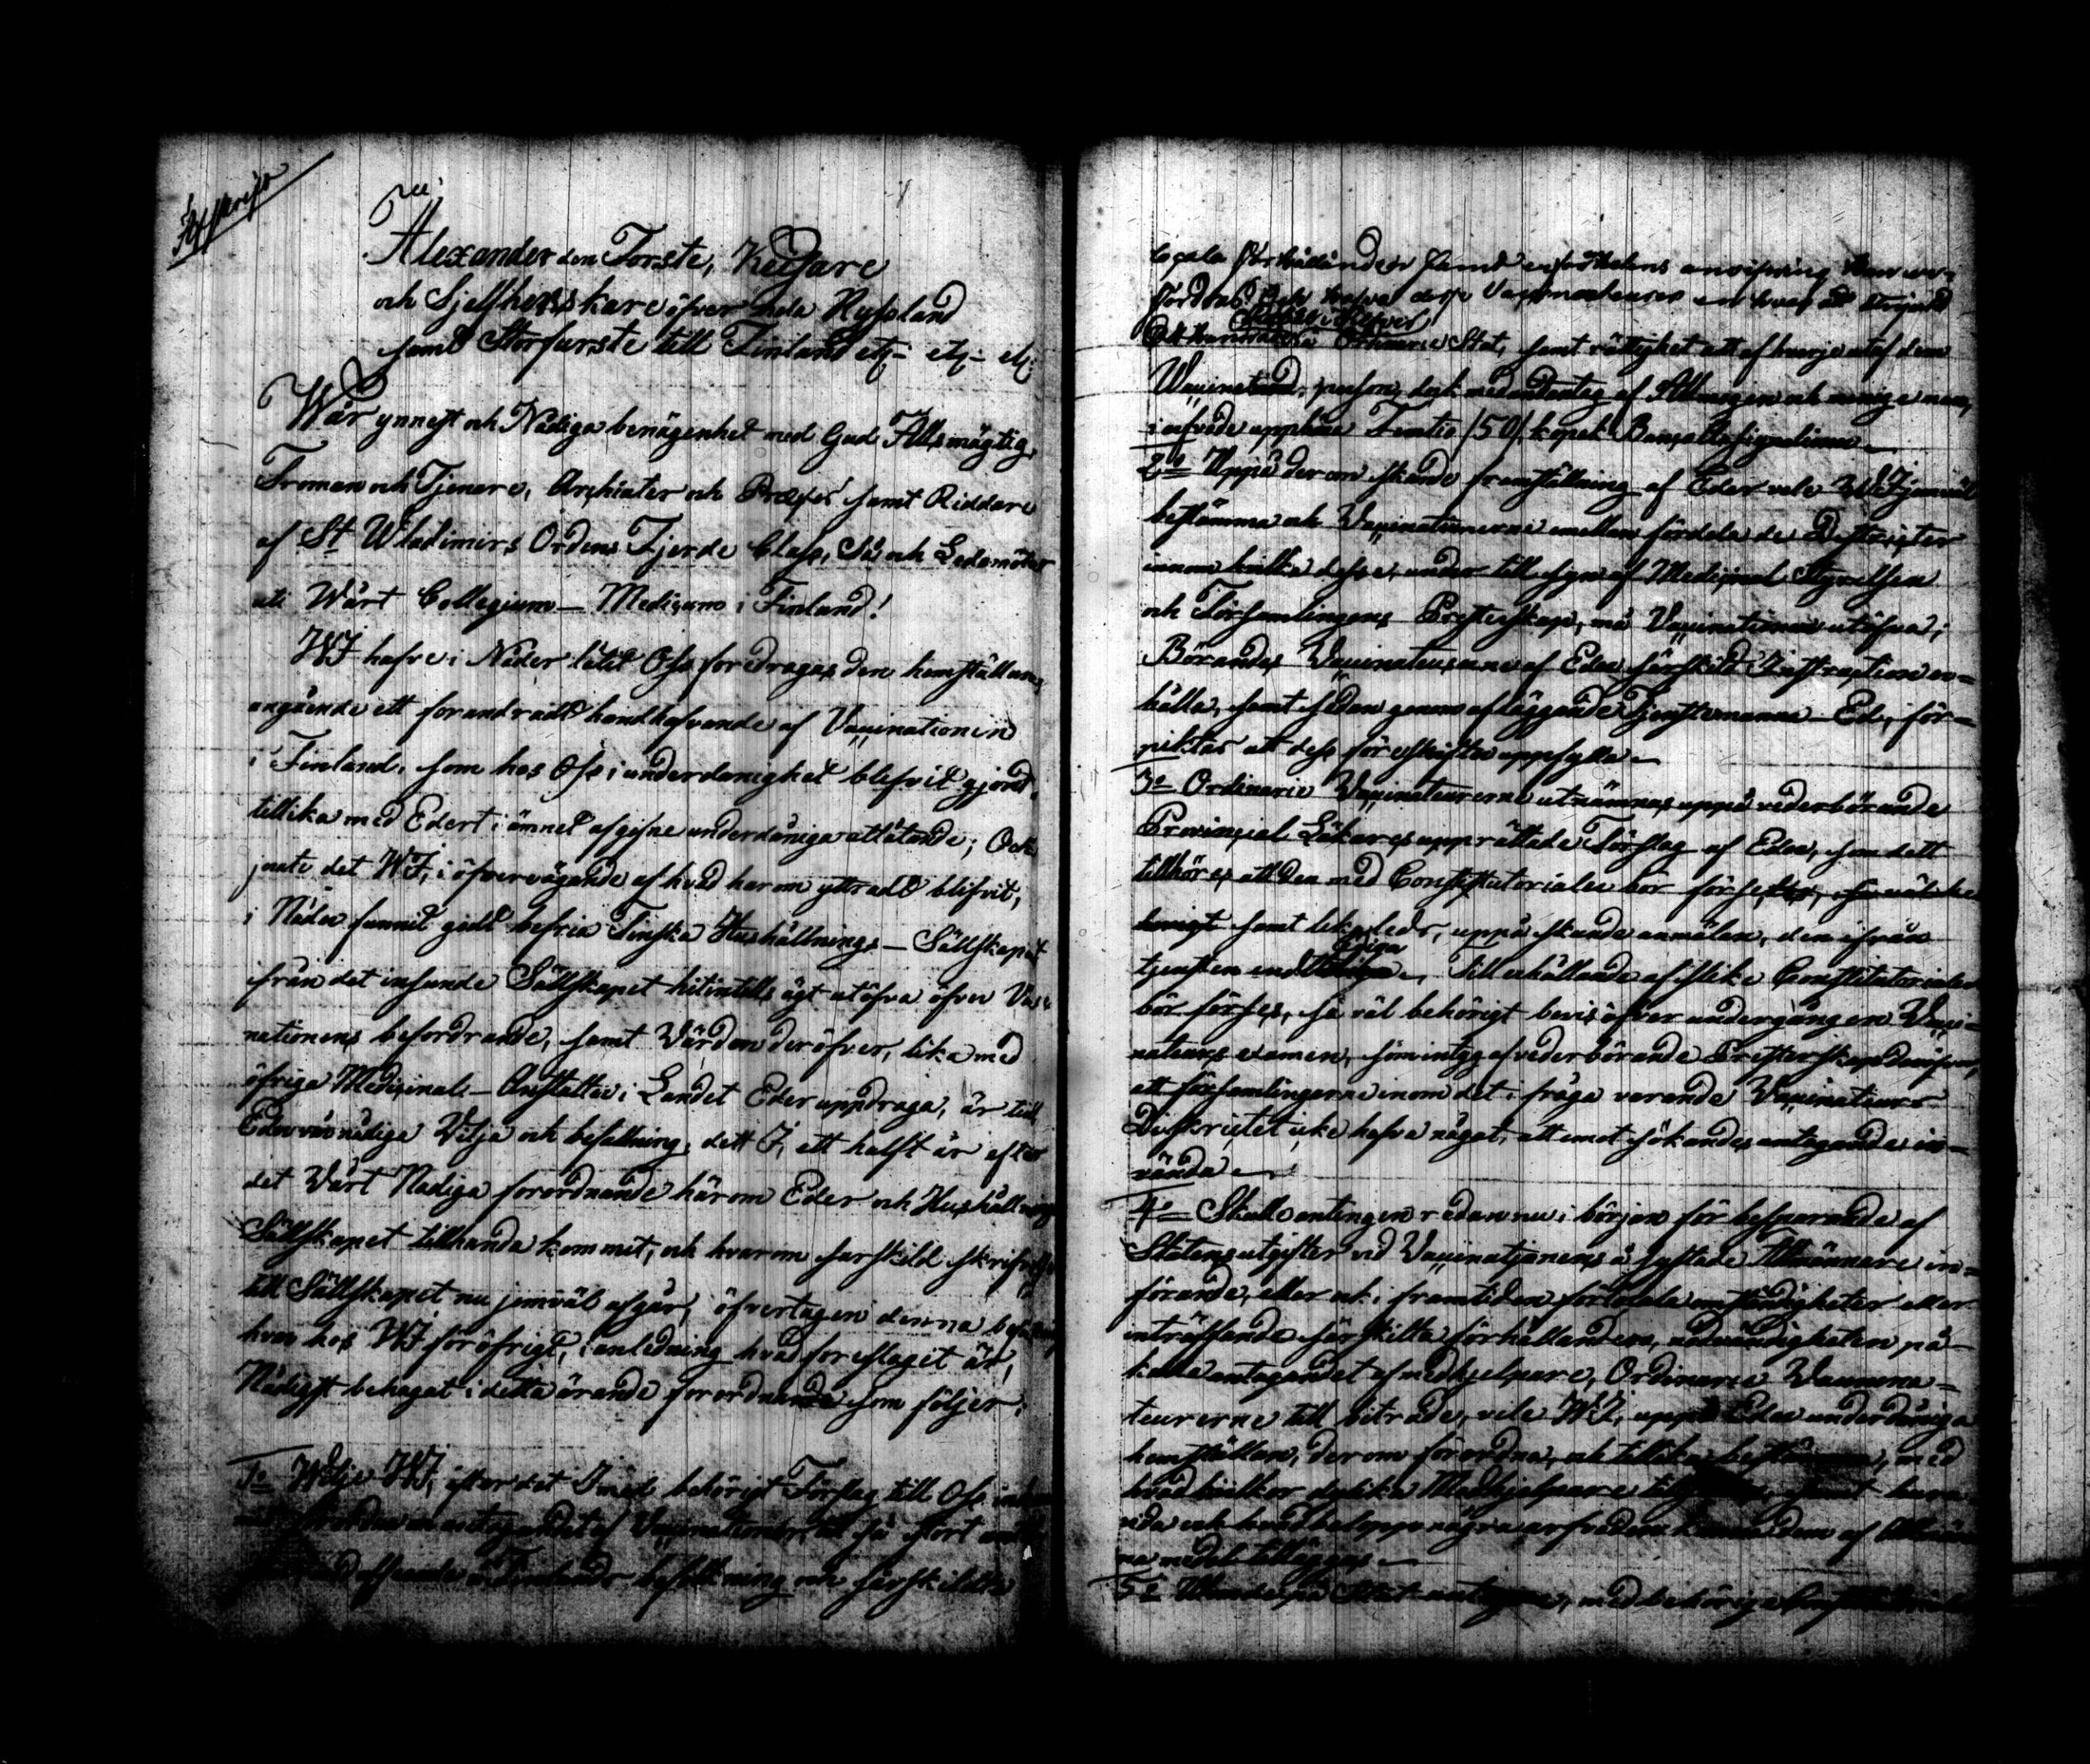 Afskrift
Alexander den Förste, Kejsare
och Sjelfherrskare öfver hela Ryssland
samt Storfurste till Finland etc- etc- etc:
Wår ynnest och Nådiga benägenhet med Gud Allsmägtig,
Troman och Tjenare, Archiater och Præses samt Riddare
af St Wladimirs Ordens Fjerde Class, Så och Ledamöter
uti Wårt Collegium - Medicum i Finland!
WI hafve i Nåder låtit Oss foredragas den hemställan,
angående ett forandradt handhafvande af Vaccinationen
i Finland, som hos Oss i underdånighet blifvit gjord,
tillika med Edert i ämnet afgifne underdåniga utlåtande; Och
som det WI, i öfvervägande af hvad harom yttradt blifvit,
i Nåder funnit godt befria Finska Hushållnings-Sällskapet
ifrån det inseende Sällskapet hitintills ägt utöfva öfver Vacci
nationens befordrande, samt Vården deröfver, lika med
öfriga Medicinal-Anstalter i Landet Eder uppdraga, är till
Eder vår nådige Vilja och befallning, dett I, ett halft år efter
det Vårt Nadiga forordnande härom Eder och Hushållnings
Sällskapet tillhanda kommit, och hvarom sarskild skrifvelse
till Sällskapet nu jemväl afgår, öfvertagen denna befattning
hvar hos WI för öfrigt, i anledning hvad foreslaget är,
Nådigst behagat i detta ärande forordna som följer:
1o Wilje WI, efter det I med behörigt Förslag till Oss
antagandet af Vaccinateurer, till så stort
afseende å Finlands befolkning och särskilta
locala förhållanden samt erfarenhetens anvisning kan
fordras, Och hafva desse Vaccinateurer en hvar att årligen
Rubel Silfver
Ordinarie Stat, samt rättighet att af hvarje utaf dem
Vaccinerad person, dock med undantag af Allmogen och menige man,
i arfvode uppbära Femtio (50) kopek Banco Assignationer.
2o Uppå derom skeende framställning af Eder vele WI jemväl
bestämma och Vaccinateurerne emellan fördela de Districter
innom hvilka desse, under tillsyn af Medicinal Styrelsen
och Församlingens Presterskap, må Vaccinationen utöfva;
Börandes Vaccinateurerne af Eder särskild Instruction er=
hålla, samt sedan genom afläggande Tjenstemanna-Ed, för=
pliktas att dess föreskrifter uppfylla.
3o Ordinarie Vaccinateurerne utnämnas uppå vederbörande
Provincial Läkares upprättade Förslag af Eder, som dett
tillhörer att dem med Constitutorialer bör förses,
samt likaledes, uppå skeende anmälan, dem ifrån
tjensten entlediga. Till erhållande af slike Constitutorialer
bör förses, så väl behörigt bevis öfver undergången Vacci=
nateurs examen, som intyg af vederbörande Presterskap derifrån,
att församlingarne inom det i fråga varande Vaccinateurs
Districtet icke hafva något, att emot sökandes antagande in=
vända.
4o Skulle antingen redan nu i början för besparande af
Statens utgifter vid Vaccinationens å syftade Allmännare in=
förande, eller ock i framtiden för locala omständigheter eller
inträffande särskilta förhållanden, nödvändigheten på=
kalla antagandet af medhjelpare, Ordinarie Vaccina=
teurerne till biträde, vele WI, uppå Eder underdåniga
hemställan, derom förordna, och tillika bestämma, med
hvad vilkor dylika Medhjelpare
och hvad belopp några arfvoden kunna dem af Allmän
na medel tilläggas.
5o